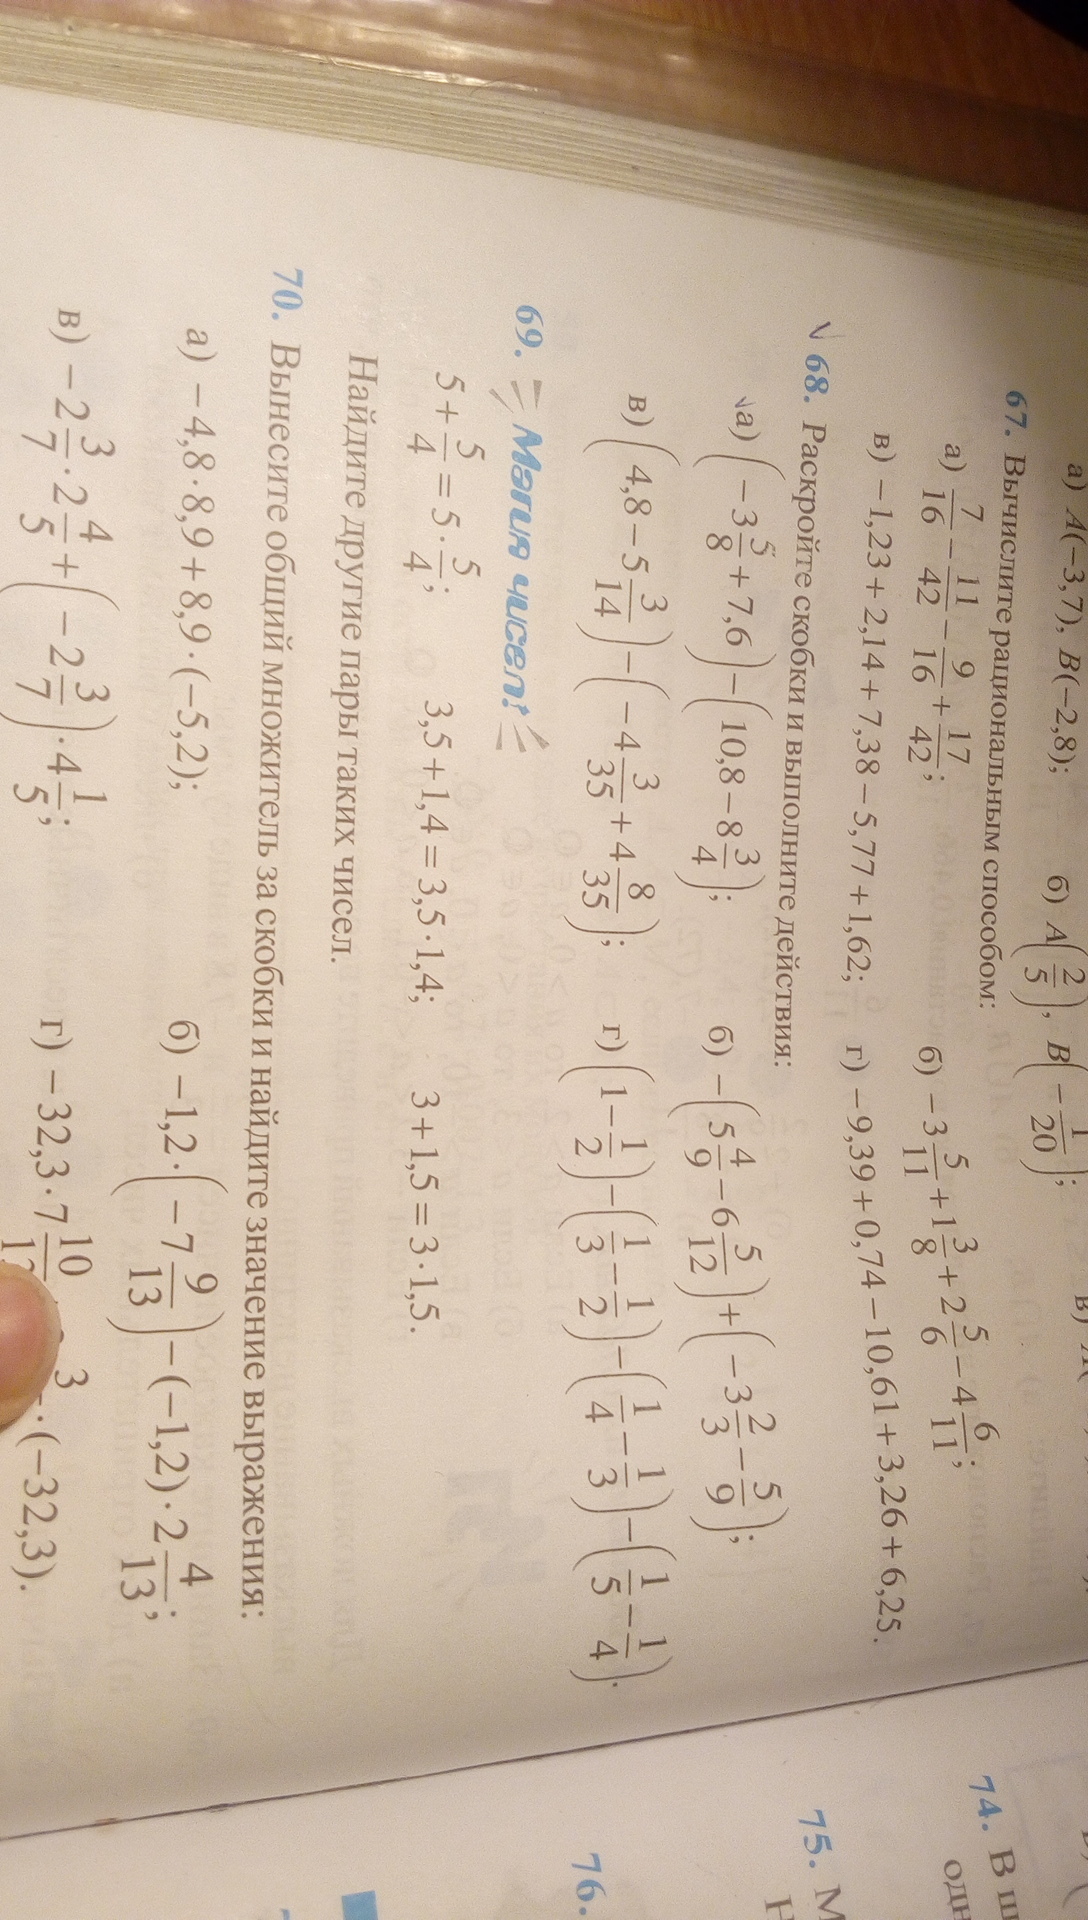 а) A(−3,7), B(−2,8); б) A(2/5), B(−1/20);
67. Вычислите рациональным способом:
а) 7/16 − 11/42 − 9/16 + 17/42; б) −3 5/11 + 1 3/8 + 2 5/6 − 4 6/11;
в) −1,23 + 2,14 + 7,38 − 5,77 + 1,62; г) −9,39 + 0,74 − 10,61 + 3,26 + 6,25.
√ 68. Раскройте скобки и выполните действия:
√а) (−3 5/8 + 7,6) − (10,8 − 8 3/4); б) −(5 4/9 − 6 5/12) + (−3 2/3 − 5/9);
в) (4,8 − 5 3/14) − (−4 3/35 + 4 8/35); г) (1 − 1/2) − (1/3 − 1/2) − (1/4 − 1/3) − (1/5 − 1/4).
69. Магия чисел!
5 + 5/4 = 5 · 5/4; 3,5 + 1,4 = 3,5 · 1,4; 3 + 1,5 = 3 · 1,5.
Найдите другие пары таких чисел.
70. Вынесите общий множитель за скобки и найдите значение выражения:
а) −4,8 · 8,9 + 8,9 · (−5,2); б) −1,2 · (−7 9/13) − (−1,2) · 2 4/13;
в) −2 3/7 · 2 4/5 + (−2 3/7) · 4 1/5; г) −32,3 · 7 10/ 3 · (−32,3).
74. В
75.
76.